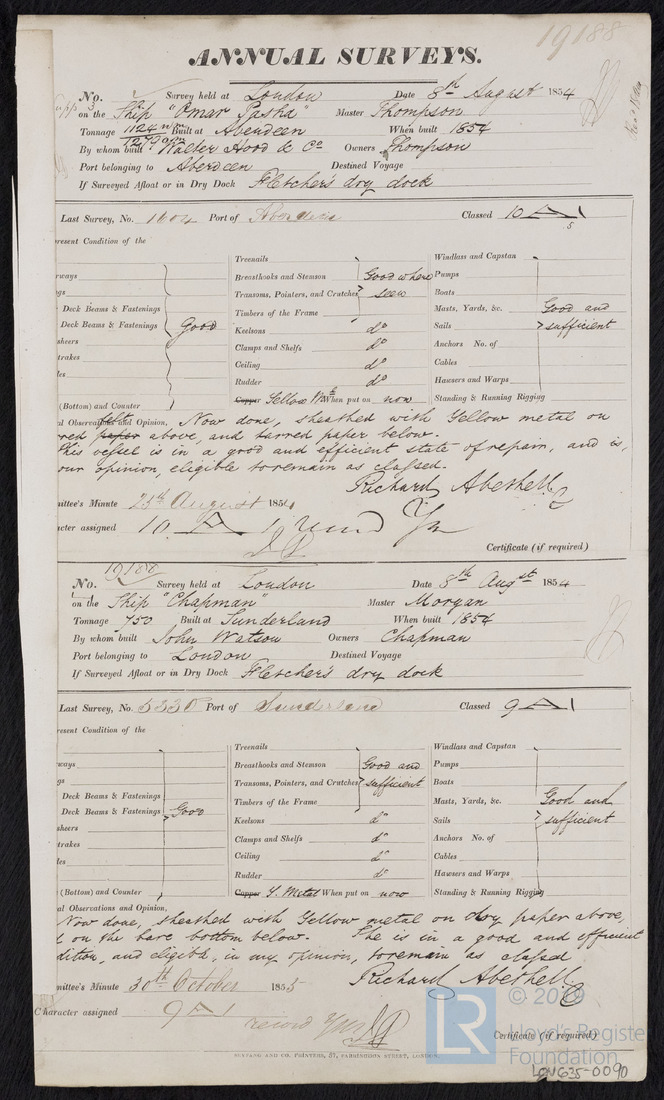 19188
ANNUAL SURVEYS.
No. Survey held at London Date 8th August 1854
on the Ship "Omar Pasha" Master Thompson
Tonnage 1124 nm 1279 om Built at Aberdeen When built 1854
By whom built Walter Hood & Co Owners Thompson
Port belonging to Aberdeen Destined Voyage
If Surveyed Afloat or in Dry Dock Fletcher's dry dock
Last Survey, No. 1604 Port of Aberdeen Classed 10 A 1
resent Condition of the
Treenails
Breasthooks and Stemson Good where
Transoms, Pointers, and Crutches seen
Timbers of the Frame
Keelsons do
Clamps and Shelfs do
Ceiling do
Rudder do
Copper Yellow Ml When put on now
Windlass and Capstan
Pumps
Boats
Masts, Yards, &c. Good and
Sails sufficient
Anchors No. of
Cables
Hawsers and Warps
Standing & Running Rigging
rways
gs
Deck Beams & Fastenings
Deck Beams & Fastenings Good
sheers
trakes
les
(Bottom) and Counter
al Observations and Opinion, Now done, sheathed with Yellow metal on
red felt paper above, and tarred paper below.
This vessel is in a good and efficient state of repair, and is,
our opinion, eligible to remain as classed.
Richard Abethell
mittee's Minute 25th August 1854
acter assigned 10 A 1
Certificate (if required)
19188
No. Survey held at London Date 8th Augst 1854
on the Ship "Chapman" Master Morgan
Tonnage 750 Built at Sunderland When built 1854
By whom built John Watson Owners Chapman
Port belonging to London Destined Voyage
If Surveyed Afloat or in Dry Dock Fletcher's dry dock
Last Survey, No. 5330 Port of Sunderland Classed 9 A 1
resent Condition of the
Treenails
Breasthooks and Stemson Good and
Transoms, Pointers, and Crutches sufficient
Timbers of the Frame
Keelsons do
Clamps and Shelfs do
Ceiling do
Rudder do
Copper Y. Metal When put on now
Windlass and Capstan
Pumps
Boats
Masts, Yards, &c. Good and
Sails sufficient
Anchors No. of
Cables
Hawsers and Warps
Standing & Running Rigging
rways
gs
Deck Beams & Fastenings
Deck Beams & Fastenings Good
sheers
trakes
les
(Bottom) and Counter
al Observations and Opinion,
Now done, sheathed with Yellow metal on dry paper above,
& on the bare bottom below. She is in a good and efficient
dition, and eligible, in my opinion, to remain as classed
Richard Abethell
mittee's Minute 30th October 1855
Character assigned 9 A 1
record YM
Certificate (if required)
© 2019
Lloyd's Register
Foundation
LR
LONG35-0090